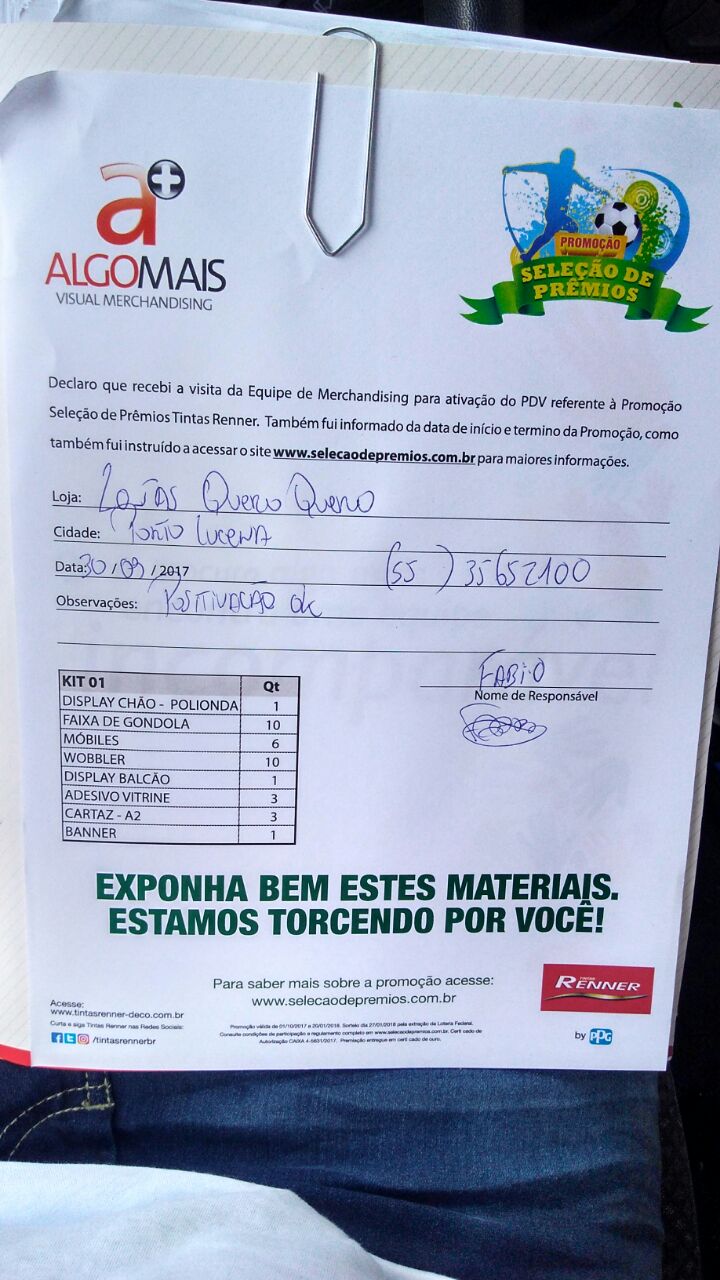 a+
ALGOMAIS
VISUAL MERCHANDISING
PROMOÇÃO
SELEÇÃO DE
PRÊMIOS
Declaro que recebi a visita da Equipe de Merchandising para ativação do PDV referente à Promoção
Seleção de Prêmios Tintas Renner. Também fui informado da data de início e termino da Promoção, como
também fui instruído a acessar o site www.selecaodepremios.com.br para maiores informações.
Loja: Lojas Quero Quero
Cidade: Porto Lucena
Data: 30/09/2017 (55) 35652100
Observações: Positivação ok
FABIO
Nome de Responsável
KIT 01 Qt
DISPLAY CHÃO - POLIONDA 1
FAIXA DE GONDOLA 10
MÓBILES 6
WOBBLER 10
DISPLAY BALCÃO 1
ADESIVO VITRINE 3
CARTAZ - A2 3
BANNER 1
EXPONHA BEM ESTES MATERIAIS.
ESTAMOS TORCENDO POR VOCÊ!
Para saber mais sobre a promoção acesse:
www.selecaodepremios.com.br
TINTAS
RENNER
by PPG
Acesse:
www.tintasrenner-deco.com.br
Curta e siga Tintas Renner nas Redes Sociais:
/tintasrennerbr
Promoção válida de 01/10/2017 a 20/01/2018. Sorteio dia 27/01/2018 pela extração da Loteria Federal.
Consulte condições de participação e regulamento completo em www.selecaodepremios.com.br. Certi cado de
Autorização CAIXA 4-5631/2017. Premiação entregue em certi cado de ouro.